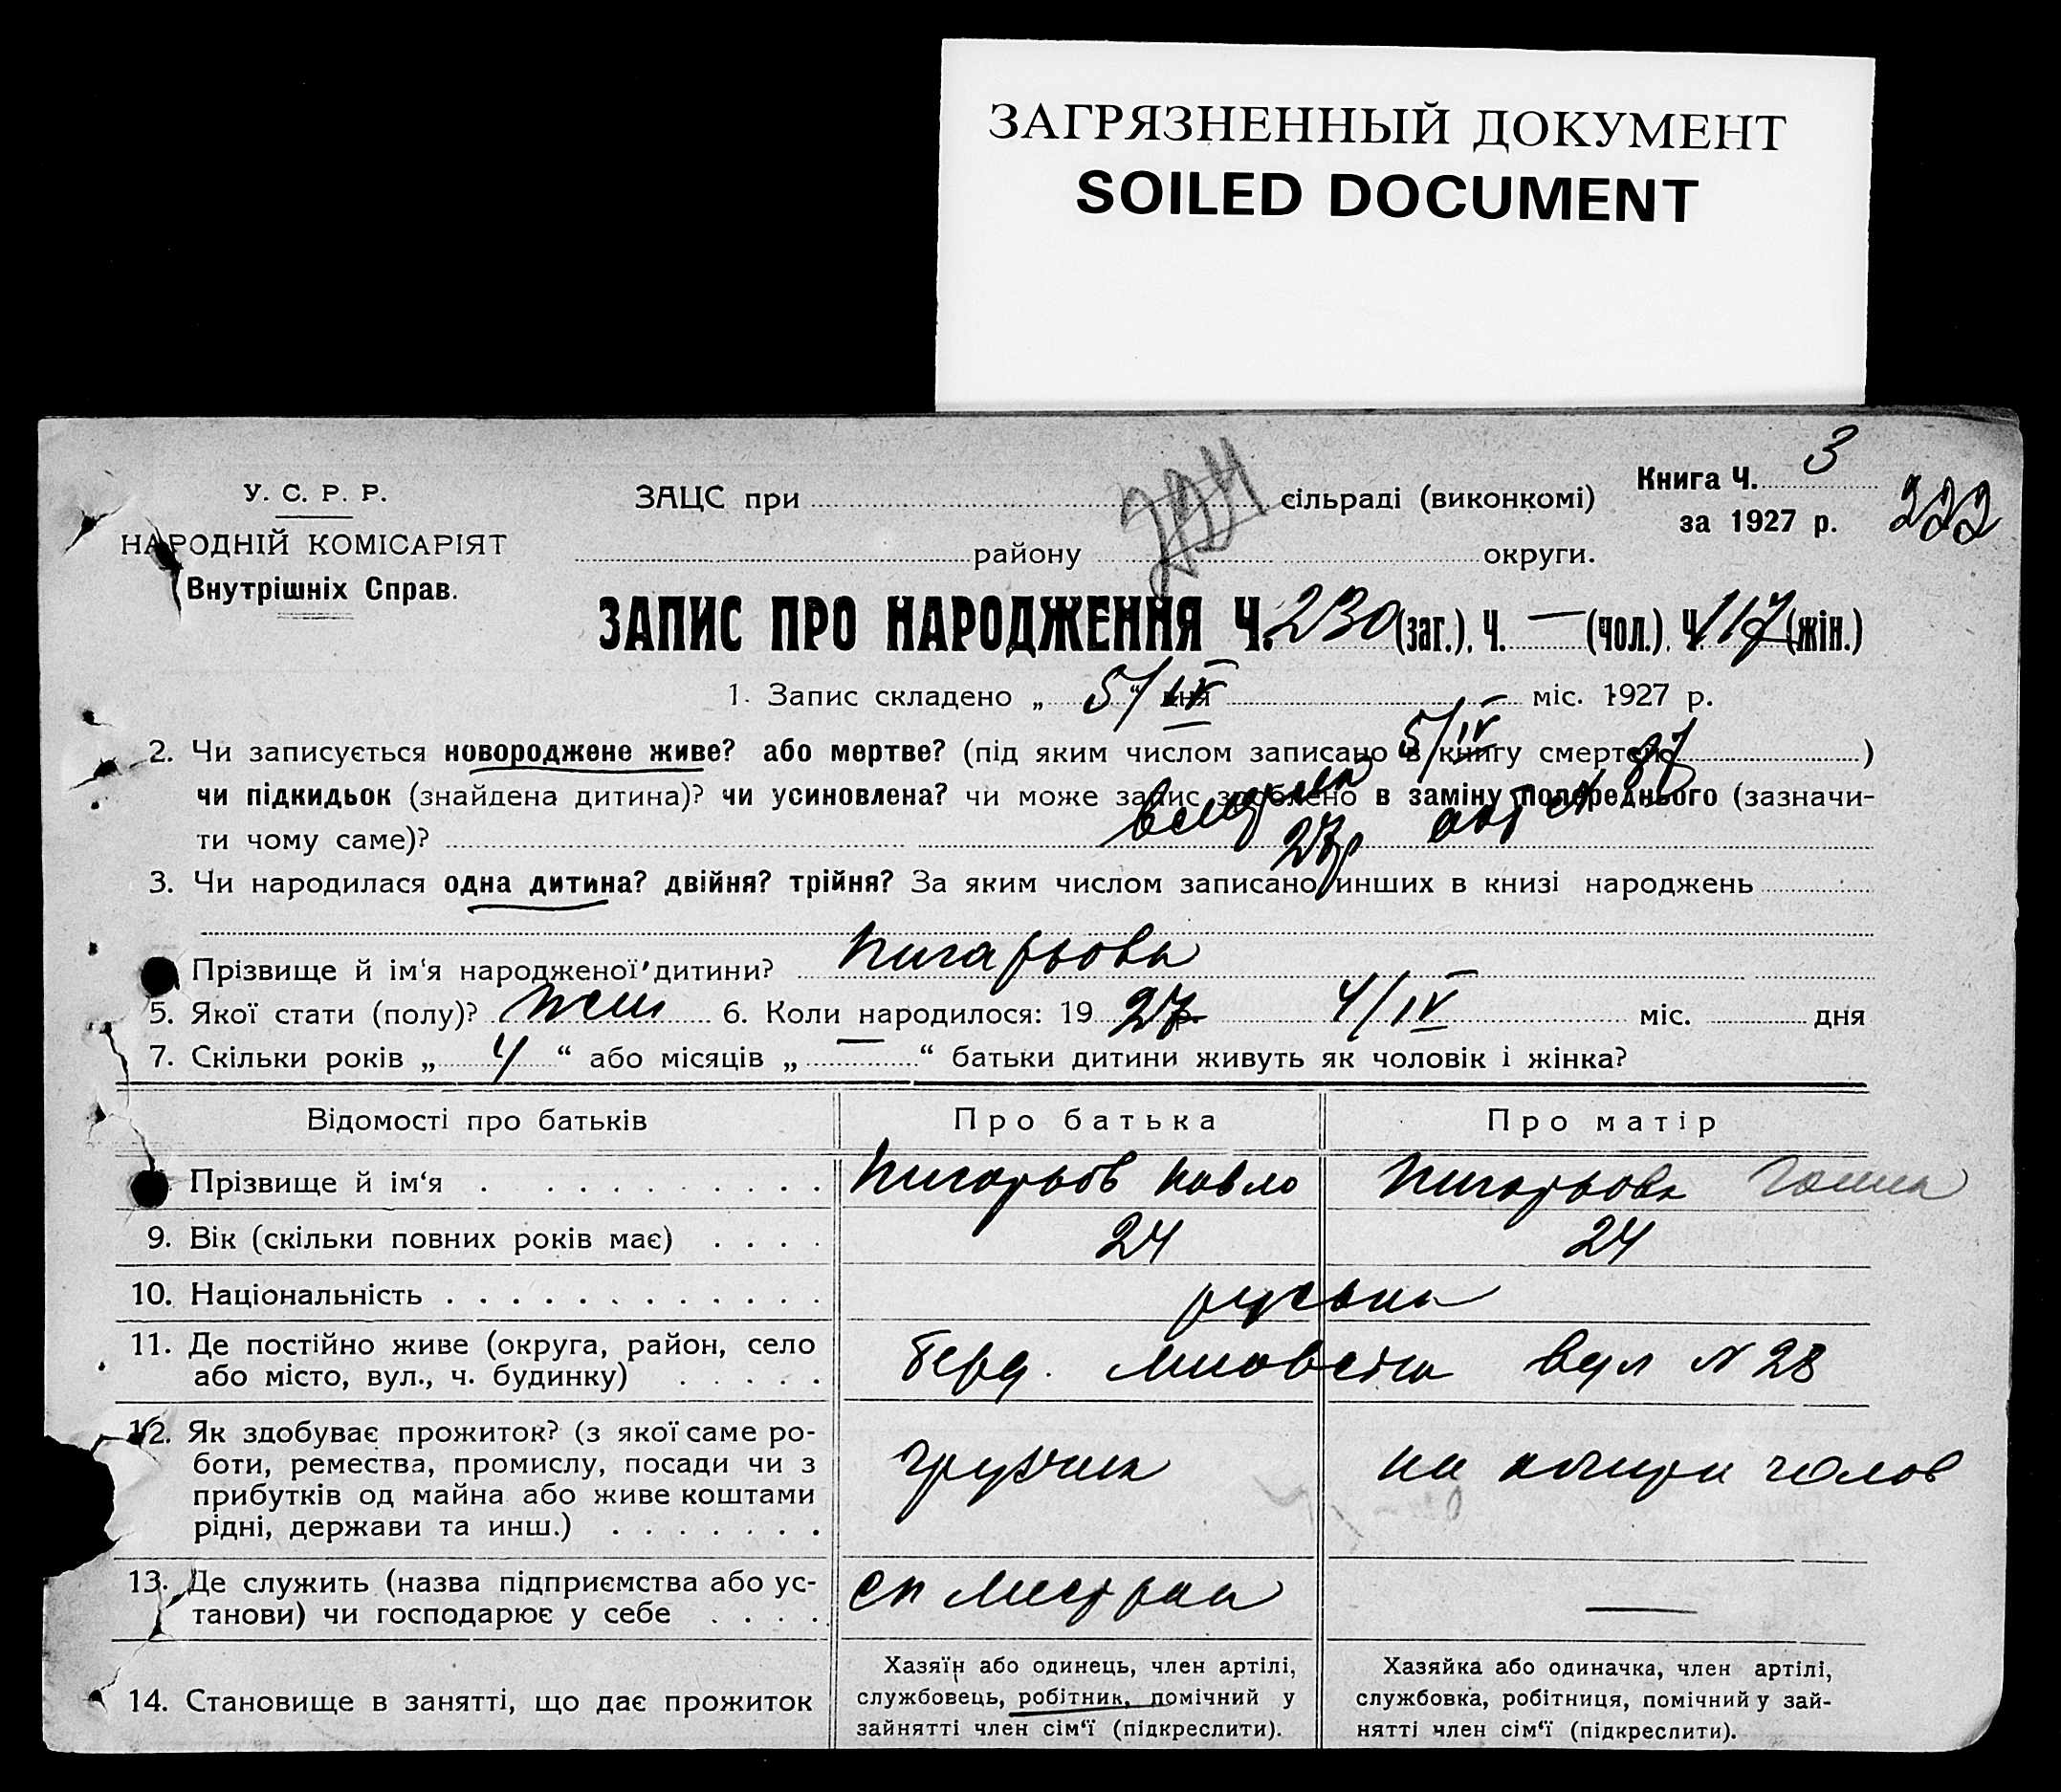 ЗАГРЯЗНЕННЫЙ ДОКУМЕНТ
SOILED DOCUMENT
Книга Ч. 3
за 1927 р.
222
У. С. Р. Р.
НАРОДНІЙ КОМІСАРІЯТ
Внутрішніх Справ.
ЗАЦС при сільраді (виконкомі)
району округи.
ЗАПИС ПРО НАРОДЖЕННЯ Ч. 230 (заг.). Ч. — (чол.). Ч. 117 (жін.)
1. Запис складено „ 5/IV “ дня міс. 1927 р.
2. Чи записується новороджене живе? або мертве? (під яким числом записано в книгу смертей 5/IV )
чи підкидьок (знайдена дитина)? чи усиновлена? чи може запис зроблено в заміну попереднього (зазначи-
ти чому саме)? 27р
3. Чи народилася одна дитина? двійня? трійня? За яким числом записано инших в книзі народжень
Прізвище й ім'я народженої дитини? Пигарьова
5. Якої стати (полу)? жін 6. Коли народилося: 1927р. 4/IV міс. дня
7. Скільки років „ 4 “ або місяців „ — “ батьки дитини живуть як чоловік і жінка?
Відомості про батьків Про батька Про матір
Прізвище й ім‘я Пигарьов Павло Пигарьова Ганна
9. Вік (скільки повних років має) 24 24
10. Національність руська
11. Де постійно живе (округа, район, село
або місто, вул., ч. будинку) Берд. вул N 28
12. Як здобуває прожиток? (з якої саме ро-
боти, ремества, промислу, посади чи з
прибутків од майна або живе коштами
рідні, держави та инш.) грузчик на кошти чолов
13. Де служить (назва підприємства або ус-
танови) чи господарює у себе —
14. Становище в занятті, що дає прожиток
Хазяїн або одинець, член артілі,
службовець, робітник, помічний у
зайнятті член сім‘ї (підкреслити).
Хазяйка або одиначка, член артілі,
службовка, робітниця, помічний у зай-
нятті член сім‘ї (підкреслити).